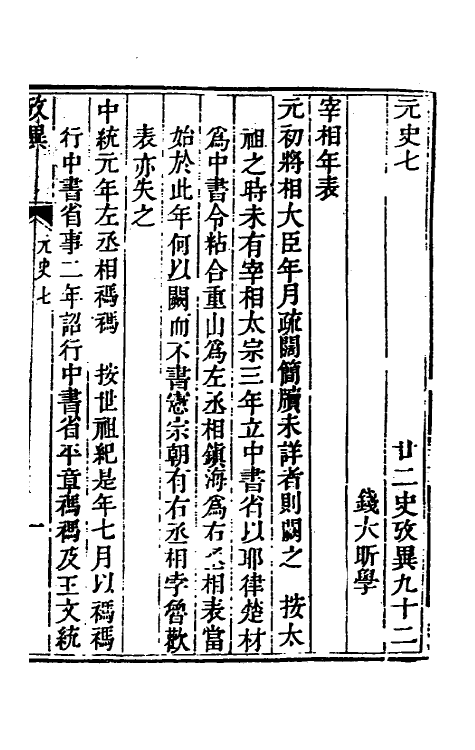 元史七　　　　　　　　廿二史攷異九十二
錢大昕學
宰相年表
元初將相大臣年月疏闊簡牘未詳者則闕之　按太
祖之時未有宰相太宗三年立中書省以耶律楚材
爲中書令粘合重山爲左丞相鎮海爲右丞相表當
始於此年何以闕而不書憲宗朝有右丞相孛魯歡
表亦失之
中統元年左丞相禡禡　按世祖紀是年七月以禡禡
行中書省事二年詔行中書省平章禡禡及王文統
攷異　元史七　一